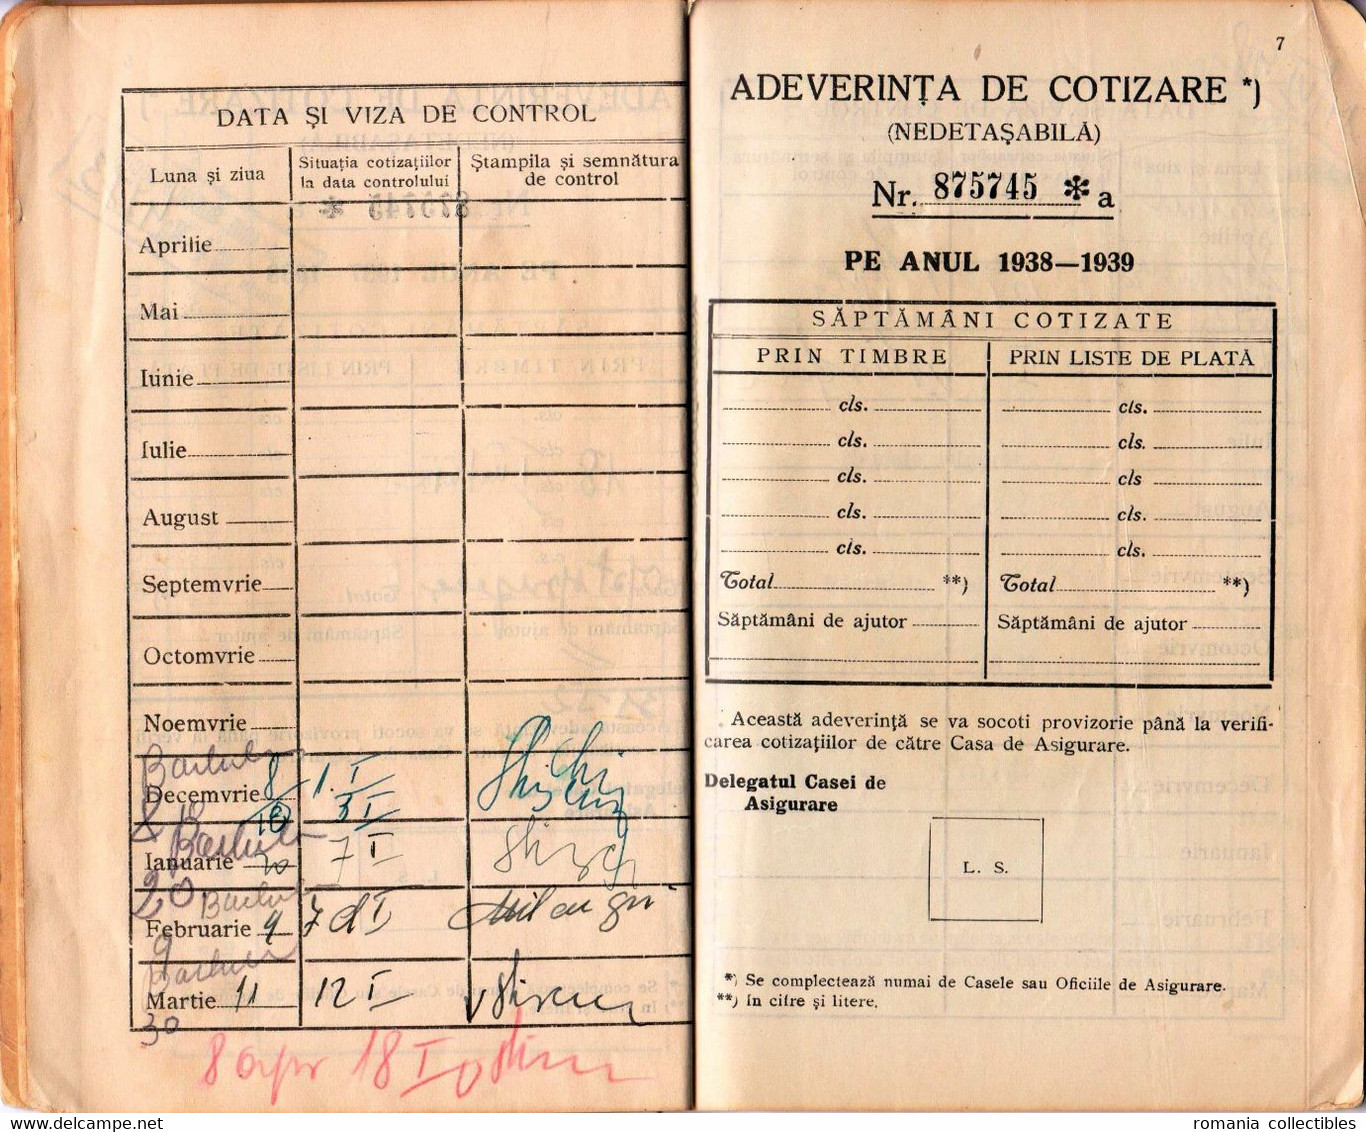 DATA ȘI VIZA DE CONTROL
Luna și ziua
Situația cotizațiilor
la data controlului
Ștampila și semnătura
de control
Aprilie
Mai
Iunie
Iulie
August
Septemvrie
Octomvrie
Noemvrie
Decemvrie 8 1. I
10 3 I
Ianuarie 20 7 I
20
Februarie 9 7 I
9
Martie 11 12 I
30
8 apr 18 I
7
ADEVERINȚA DE COTIZARE *)
(NEDETAȘABILĂ)
Nr. 875745 ✻ a
PE ANUL 1938—1939
SĂPTĂMÂNI COTIZATE
PRIN TIMBRE
PRIN LISTE DE PLATĂ
cls. cls.
cls. cls.
cls. cls
cls. cls.
cls. cls.
Total **) Total **)
Săptămâni de ajutor Săptămâni de ajutor
Această adeverință se va socoti provizorie până la verifi-
carea cotizațiilor de către Casa de Asigurare.
Delegatul Casei de
Asigurare
L. S.
*) Se complectează numai de Casele sau Oficiile de Asigurare.
**) În cifre și litere.
delcampe.net
romania collectibles